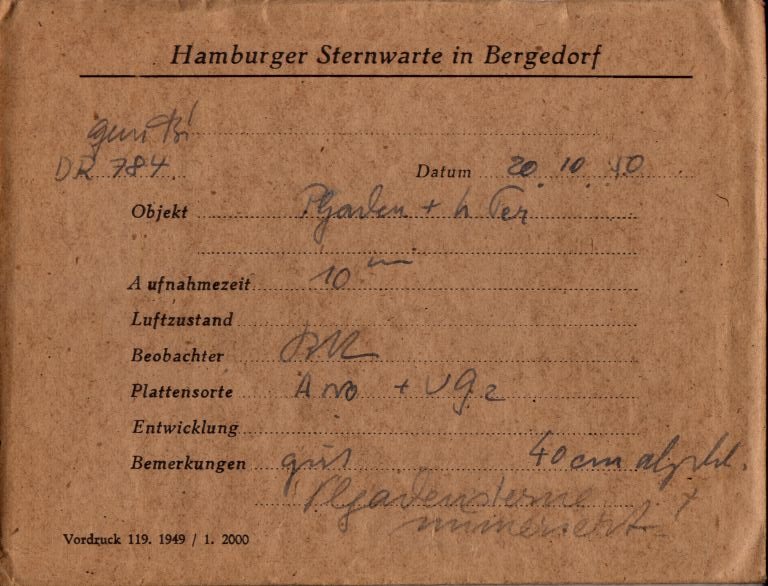 Hamburger Sternwarte in Bergedorf
DR 784
Datum 20. 10. 50
Objekt Plejaden + h Per
Aufnahmezeit 10 m
Luftzustand
Beobachter
Plattensorte + UG2
Entwicklung
Bemerkungen gut 40cm abgebl.
Plejadensterne
numeriert!
Vordruck 119. 1949 / 1. 2000